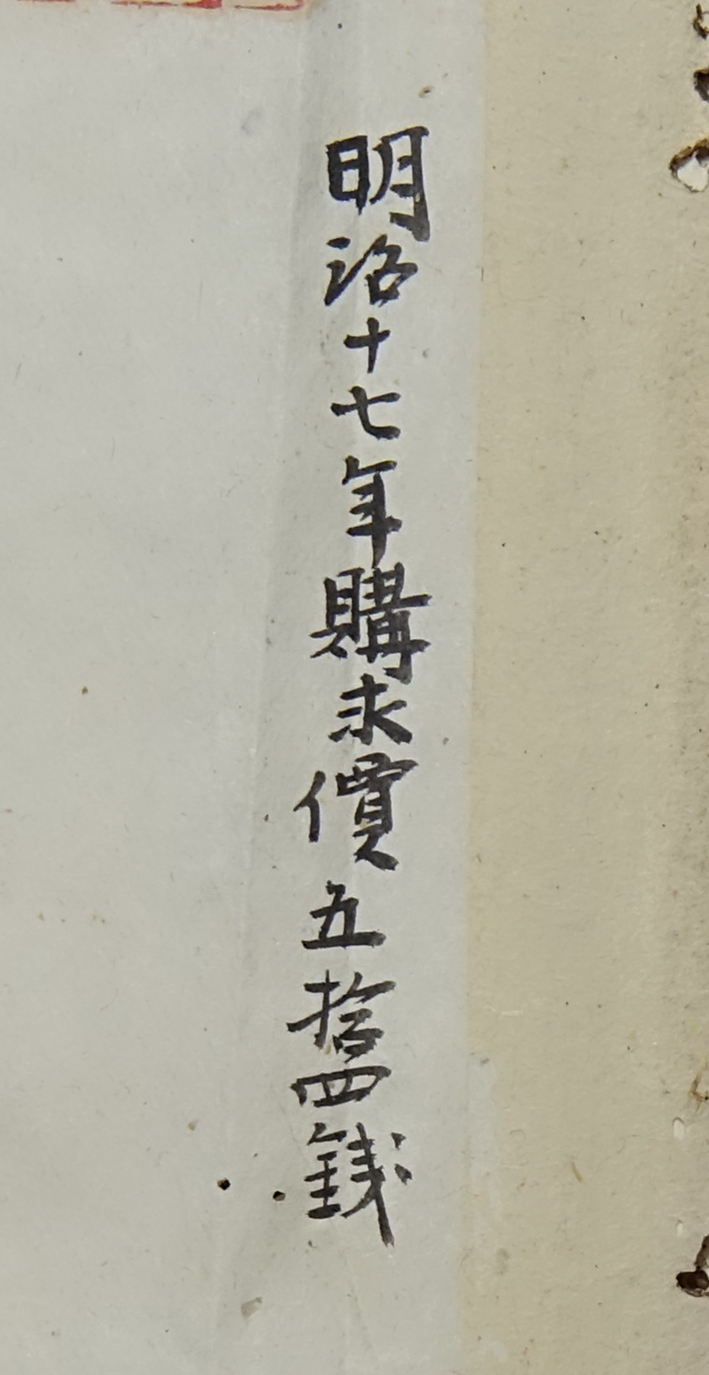 明治十七年購求價五拾四銭